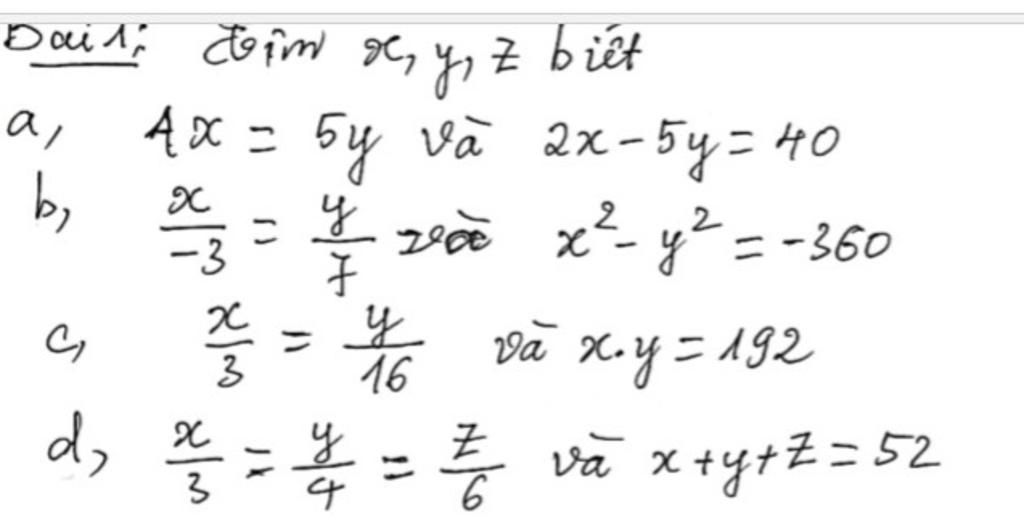 Bài 1: Tìm x, y, z biết
a, 4x = 5y và 2x - 5y = 40
b, x/-3 = y/7 và x² - y² = -360
c, x/3 = y/16 và x.y = 192
d, x/3 = y/4 = z/6 và x+y+z = 52